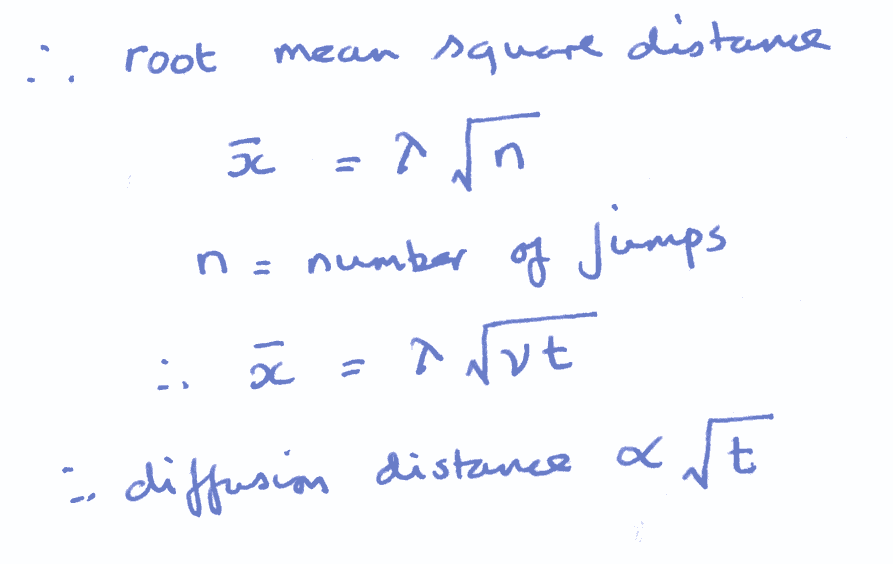 ∴ root mean square distance
x̄ = λ √n
n = number of jumps
∴ x̄ = λ √νt
∴ diffusion distance ∝ √t